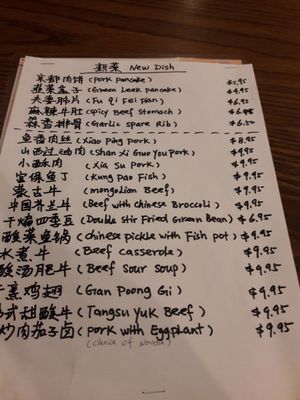 新菜 New Dish
京都肉饼 (Pork pancake) $5.95
韭菜盒子 (Green Leek pancake) $4.95
夫妻肺片 (Fu Qi Fei Pian) $6.95
麻辣牛肚 (Spicy Beef Stomach) $6.95
蒜香排骨 (Garlic Spare Rib) $6.50
鱼香肉丝 (Xiao Ping Pork) $8.95
山西过油肉 (Shan Xi Guo You Pork) $9.95
小酥肉 (Xia Su Pork) $9.95
宫保鱼丁 (Kung Pao Fish) $9.95
蒙古牛 (Mongolian Beef) $9.95
中国芥兰牛 (Beef with Chinese Broccoli) $9.95
干煸四季豆 (Double Stir Fried Green Bean) $6.95
酸菜鱼锅 (Chinese pickle with Fish pot) $9.95
水煮牛 (Beef Casserole) $9.95
酸汤肥牛 (Beef Sour Soup) $9.95
干烹鸡翅 (Gan Poong Gi) $9.95
式甜酸牛 (Tangsu Yuk Beef) $9.95
炒肉茄子卤 (Pork with Eggplant) $9.95
(choice of Noodle)